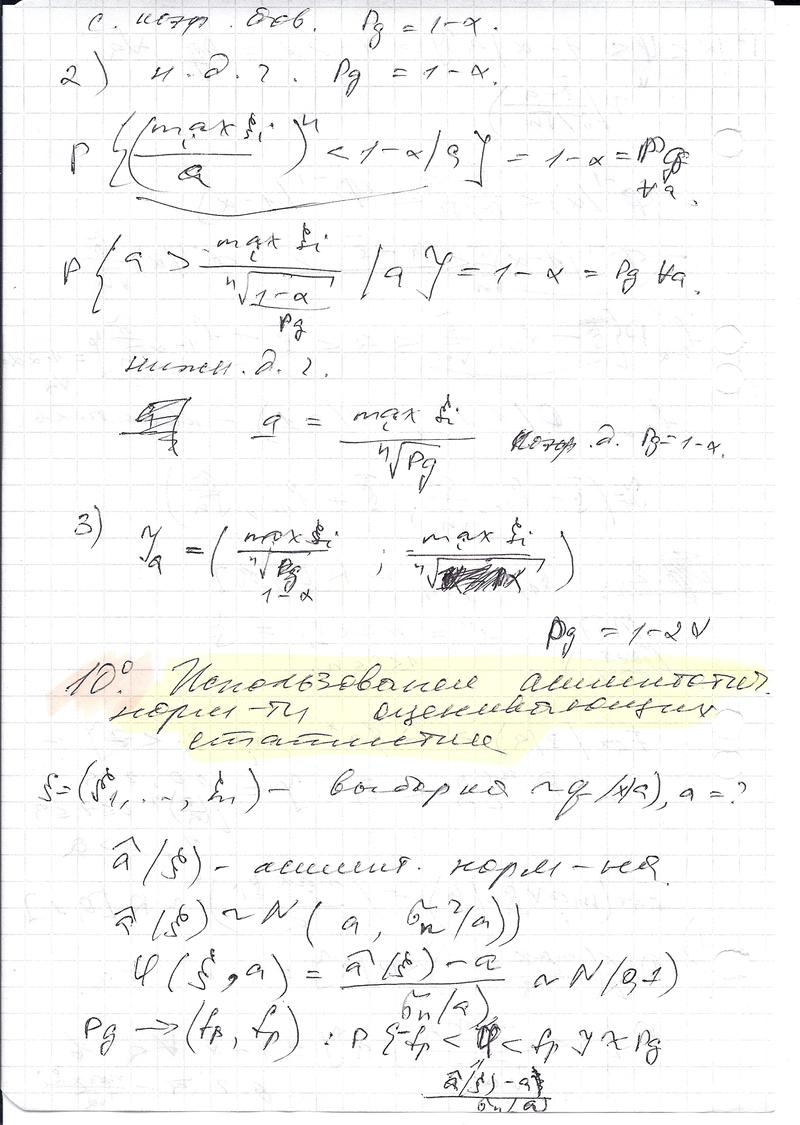 с. коэф. дов. Pg = 1-α.
2) н. д. г. Pg = 1-α.
P{(max ξi / a)^n < 1-α / a} = 1-α = Pg ∀a.
P{a > max ξi / ⁿ√(1-α) / a} = 1-α = Pg ∀a.
Pg
нижн. д. г.
a = max ξi / ⁿ√Pg коэф. д. Pg=1-α.
3) Ya = (max ξi / ⁿ√Pg ; max ξi / ⁿ√ )
1-α
Pg = 1-2α
10°. Использование асимптотич.
норм-ти оценивающих
статистик
ξ=(ξ1, ..., ξn) - выборка ~q(x/a), a=?
â(ξ) - асимпт. норм-ная.
â(ξ) ~ N(a, σn²(a))
φ(ξ, a) = (â(ξ) - a) / σn(a) ~ N(0,1)
Pg → (fp, fp) : P{-fp < φ < fp} ≈ Pg
(â(ξ) - a) / σn(a)